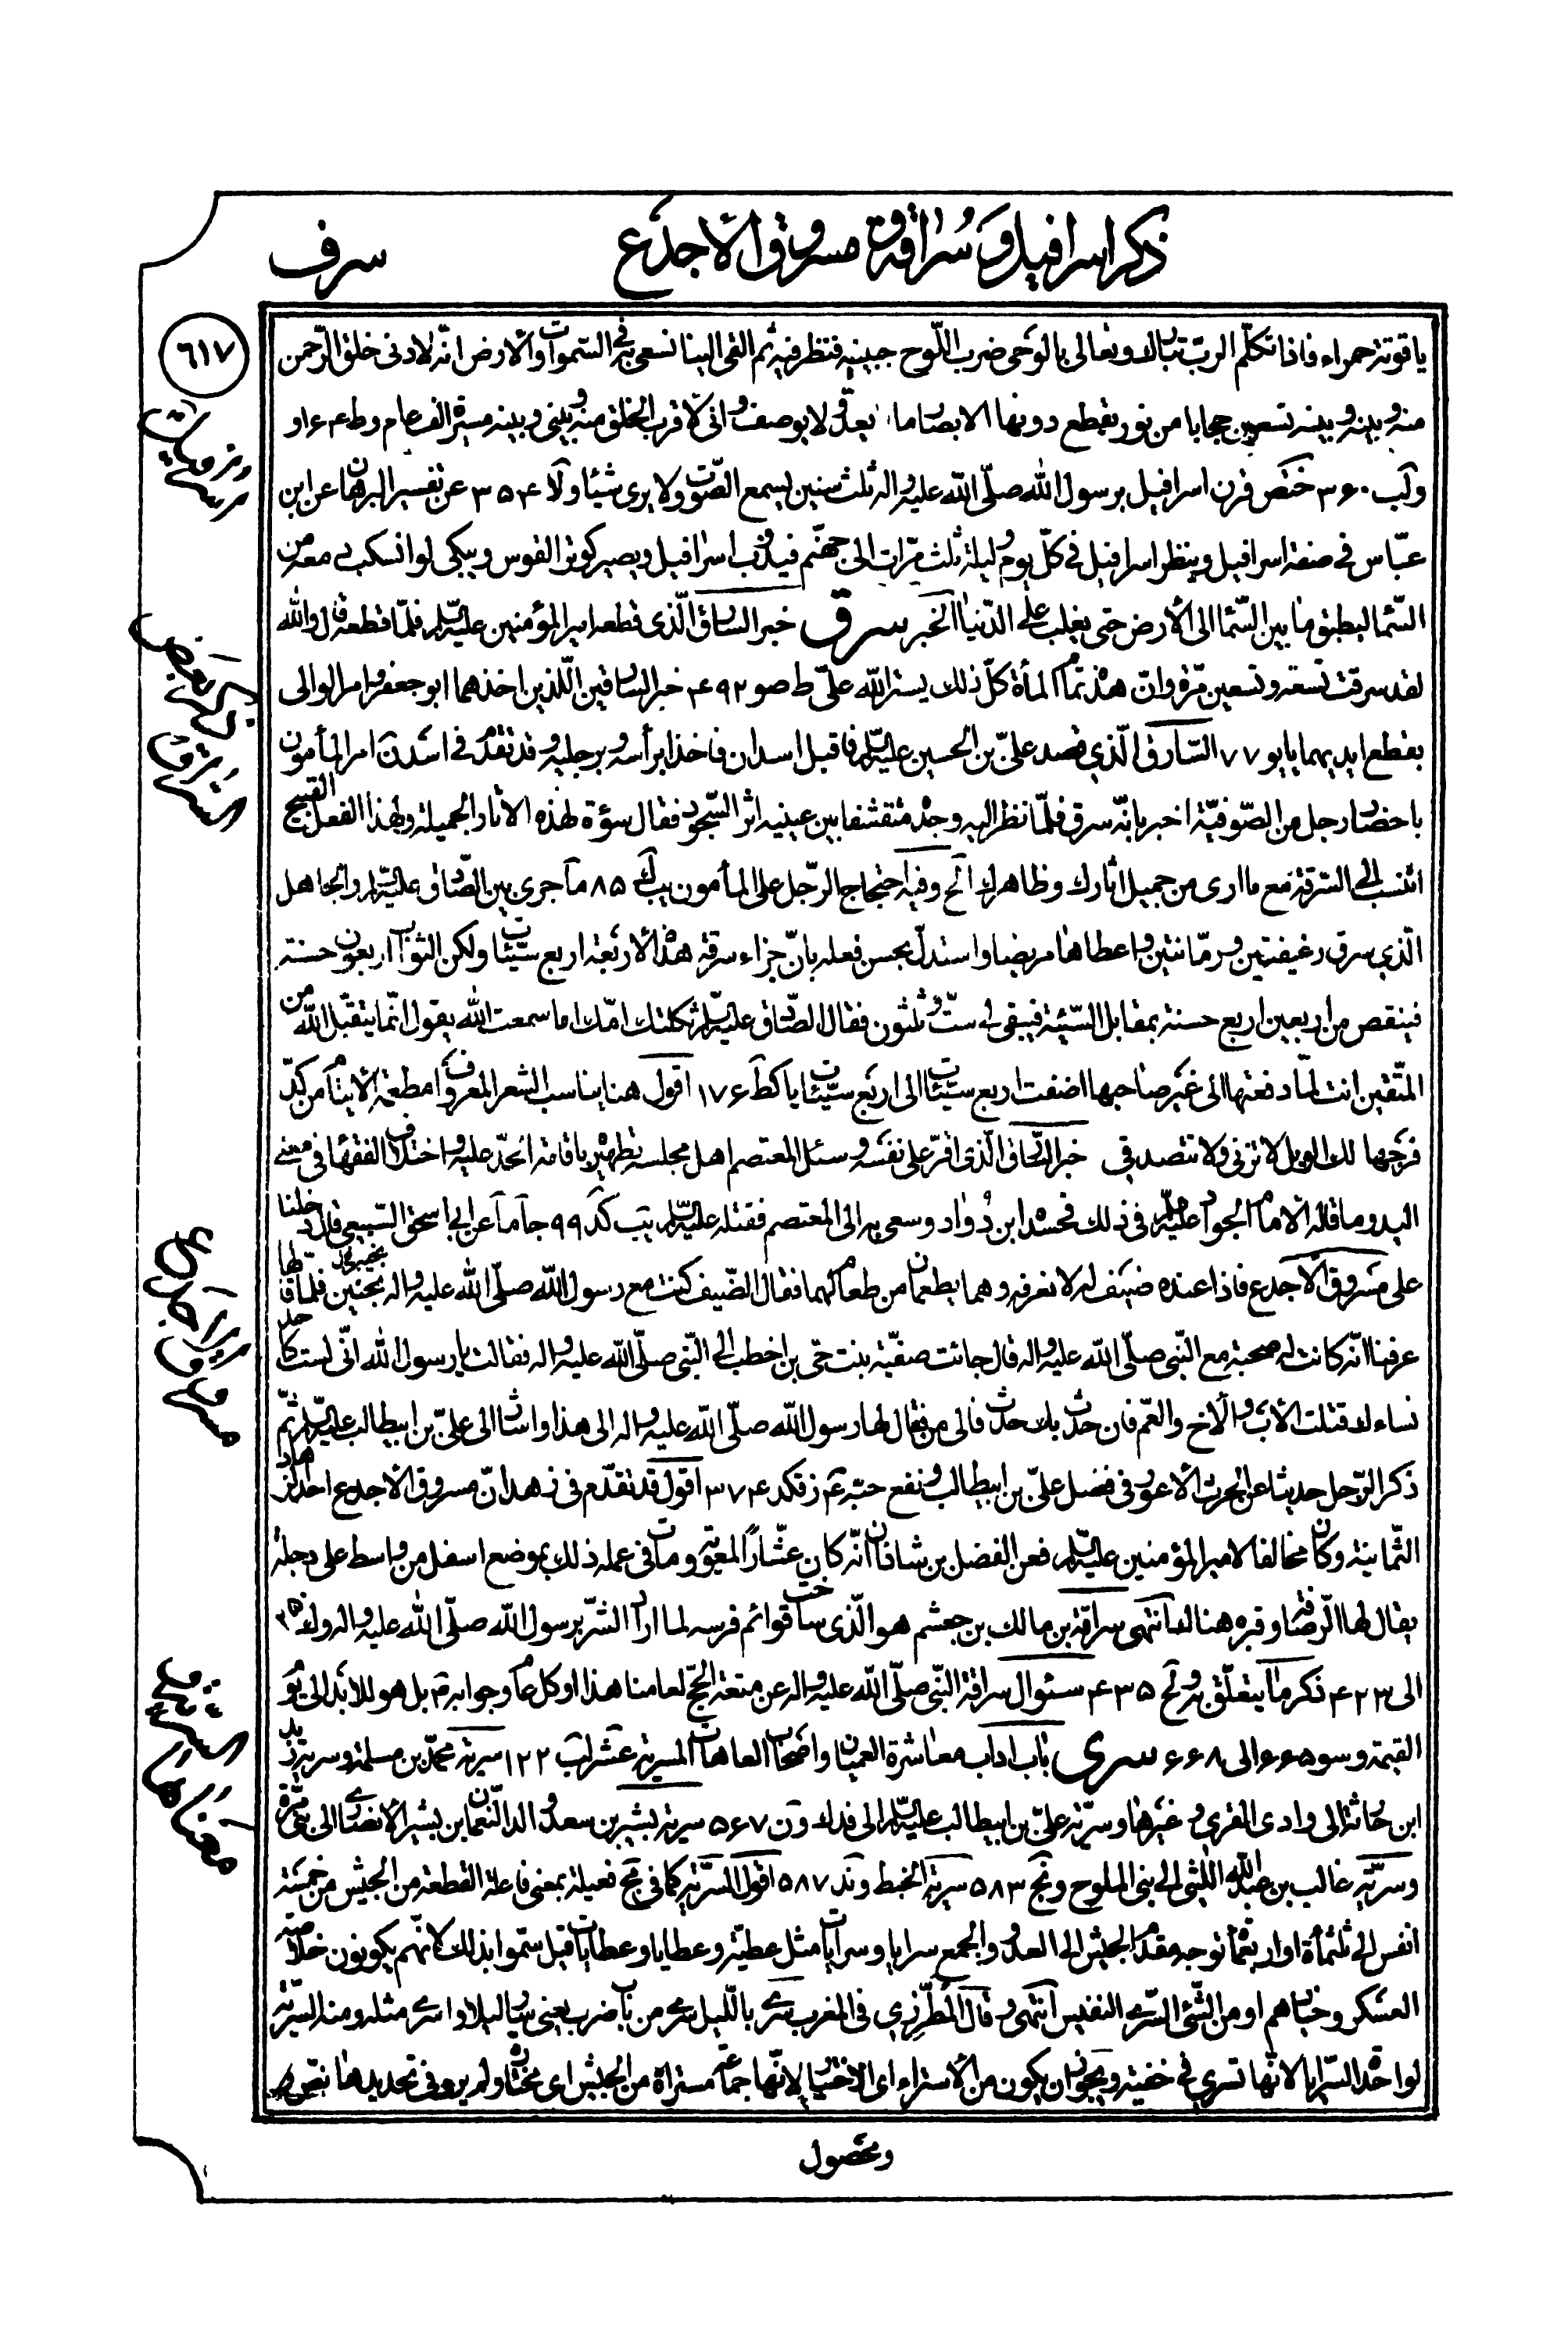 ذكر اسرافيل و سراقة و مسروق الأجدع
سرف
٦١٧
ياقوتة حمراء فاذا تكلّم الربّ تبارك وتعالى بالوحى ضرب اللّوح جبينه فنظر فيه ثم القى الينا نسعى به فى السّموات والأرض انّه لادنى خلق الرّحمن
منه وبينه وبينه تسعين حجابا من نور يقطع دونها الابصار ما يعدّ ولا يوصف وانّى لأقرب الخلق منه وبينى وبينه مسيرة الف عام وط ۱۶۴ و
وآب ۳۶۰ خَتَص قرن اسرافيل برسول الله صلّى الله عليه واله ثلث سنين يسمع الصّوت ولا يرى شيئا ولآ ۳۵۴ عن تفسير البرهان عن ابن
عبّاس فى صفة اسرافيل وينظر اسرافيل فى كلّ يوم وليلة ثلث مرّات الى جهنّم فيذوب اسرافيل ويصير كوتر القوس ويبكى لو انسكب دمعه من
السّماء ليطبق ما بين السّماء الى الأرض حتى يغلب على الدّنيا الخبر سرق خبر السارق الّذى قطعه امير المؤمنين عليه السّلم فلمّا قطعه قال والله
لقد سرقت تسعة وتسعين مرّة وانّ هذه تمام المأة كلّ ذلك يستر الله علىّ ط صو ۴۹۲ خبر السارقين اللّذين اخذهما ابو جعفر وامر الوالى
بقطع ايديهما يا يو ۷۷ السّارق الّذي قصد علىّ بن الحسين عليه السّلم فاقبل اسدان فاخذا برأسه وبرجليه وقد تقدّم فى اسد ن امر المأمون
باحضار رجل من الصّوفيّة اخبر بانّه سرق فلمّا نظر اليه وجده متقشفا بين عينيه اثر السّجود فقال سوءة لهذه الاثار الجميلة ولهذا الفعل القبيح
اتنسب الى السّرقة مع ما ارى من جميل اثارك وظاهرك الخ وفيه احتجاج الرّجل على المأمون يب ك ۸۵ ما جرى بين الصّادق عليه السّلم والجاهل
الّذى سرق رغيفتين ورمّانتين واعطاها مريضا واستدلّ بحسن فعله بانّ جزاء سرقة هذه الأربعة اربع سيّئات ولكن الثواب اربعون حسنة
فينقص من اربعين اربع حسنة بمقابل السّيّئة فيبقى لى ستّ وثلثون فقال الصّادق عليه السّلم ثكلتك امّك اما سمعت الله يقول انّما يتقبّل الله من
المتّقين انت لمّا دفعتها الى غير صاحبها اضفت اربع سيّئات الى اربع سيّئات يا كط ۱۷۶ اقول هنا يناسب الشعر المعروف أمطعمة الايتام من كدّ
فرجها لك الويل لا تزنى ولا تتصدقى خبر السّارق الّذى اقرّ على نفسه وسئل المعتصم اهل مجلسه تطهيره باقامة الحدّ عليه واختلاف الفقهاء فى معنى
اليد وما قاله الامام الجواد عليه السّلم فى ذلك فحسده ابن دُوٰاد وسعى به الى المعتصم فقتله عليه السّلم يب كد ۹۹ جا ما عن ابى اسحق السّبيعى قال دخلنا
على مسروق الأجدع فاذا عنده ضيف له لا نعرفه وهما يطعمان من طعام لهما فقال الضّيف كنت مع رسول الله صلّى الله عليه واله بحنين فلمّا قالها
عرفنا انّه كانت له صحبة مع النّبى صلّى الله عليه واله قال جائت صفيّة بنت حىّ بن اخطب الى النّبى صلّى الله عليه واله فقالت يا رسول الله انّى لست كاحد
نساءك قتلت الأب والأخ والعمّ فان حدث بك حدث فالى من فقال لها رسول الله صلّى الله عليه واله الى هذا واشار الى علىّ بن ابيطالب عليه السّلم ثمّ
ذكر الرّجل حديثا عن الحرث الأعور فى فضل علىّ بن ابيطالب ونفع حبّه ز قكد ۳۷۴ اقول قد تقدّم فى زهد انّ مسروق الأجدع احد الزهاد
الثّمانية وكان مخالفا لامير المؤمنين عليه السّلم فعن الفضل بن شاذان انّه كان عشّارًا لمعوية ومات فى عمله ذلك بموضع اسفل من واسط على دجلة
يقال لها الرّصافة وقبره هنالك انتهى سراقة بن مالك بن جعشم هو الّذى ساخت قوائم فرسه لما اراد الشّرّ برسول الله صلّى الله عليه واله
الى ۴۲۳ ذكر ما يتعلّق به ولح ۴۳۵ سئوال سراقة النّبى صلّى الله عليه واله عن متعة الحجّ لعامنا هذا او كل عام وجوابه بل هو للأبد الى يوم
القيمة وسو ۶۶۵ الى ۶۶۸ سرى باب اداب معاشرة العميان واصحاب العاهات المسرية عشر لب ۱۲۲ سرية محمّد بن مسلمة وسرية زيد
ابن حارثة الى وادى القرى وغيرها وسرّية علىّ بن ابيطالب عليه السّلم الى فدك ون ۵۶۷ سرية بشير بن سعد والد النّعمان بن بشير الأنصارى الى بنى مرّة
وسرّية غالب بن عبد الله اللّيثى الى بنى الملوح ونج ۵۸۳ سرية الخبط وند ۵۸۷ اقول السّرّية كما فى مجع فعيلة بمعنى فاعلة القطعة من الجيش من خمسة
انفس الى ثلثمأة او اربعمأة توجه مقدّم الجيش الى العدوّ والجمع سرايا وسرايات مثل عطيّة وعطايا وعطايات قيل سمّوا بذلك لأنّهم يكونون خلاصة
العسكر وخيارهم او من الشّئ السّرىّ النفيس انتهى وقال المُطرّزى فى المغرب سرى باللّيل سرى من باب ضرب بمعنى سار ليلا واسرى مثله ومنه السّريّة
لواحدة السّرايا لانّها تسرى فى خفية ويجوز ان يكون من الأستراء اى الاختيار لانّها جماعة مستراة من الجيش اى مختارة ولم يرو فى تحديدها نصّ
ومحصول
مسروق الأجدع
معناها السرية